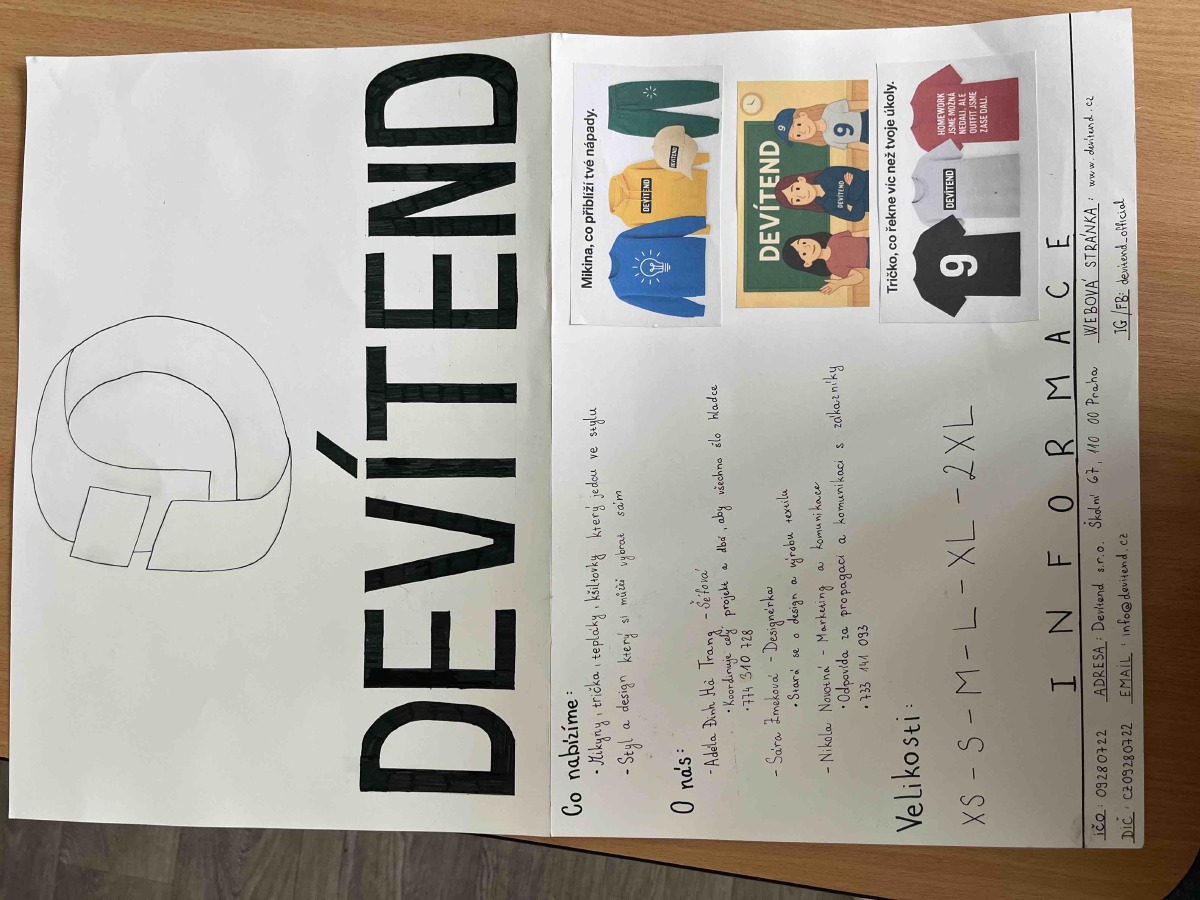 DEVÍTEND
Co nabízíme:
• Mikyny, trička, tepláky, kšiltovky který jedou ve stylu
- Styl a design který si můžeš vybrat sám
O nás:
- Adéla Dinh Hà Trang - Šéfová
• Koordinuje celý projekt a dbá, aby všechno šlo hladce
• 774 310 728
- Sára Zmeková - Designérka
• Stará se o design a výrobu textilu
- Nikola Novotná - Marketing a komunikace
• Odpovídá za propagaci a komunikaci s zákazníky
• 733 141 093
Velikosti:
XS - S - M - L - XL - 2XL
Mikina, co přiblíží tvé nápady.
DEVÍTEND
DEVÍTEND
DEVÍTEND
9
DEVÍTEND
9
Tričko, co řekne víc než tvoje úkoly.
9
DEVÍTEND
HOMEWORK
JSME MOŽNÁ
NEDALI, ALE
OUTFIT JSME
ZASE DALI.
INFORMACE
IČO: 09280722 ADRESA: Devítend s.r.o. Školní 67, 110 00 Praha WEBOVÁ STRÁNKA: www.devitend.cz
DIČ: CZ09280722 EMAIL: info@devitend.cz IG/FB: devitend_official